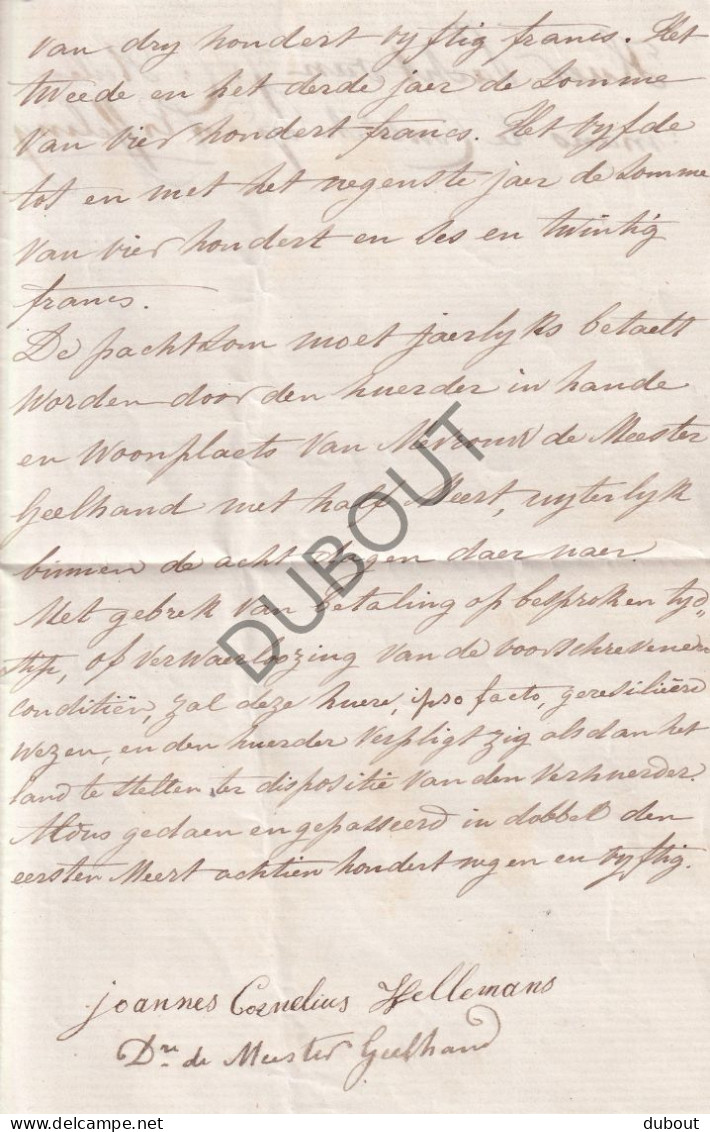 van dry hondert vyftig francs. Het
tweede en het derde jaer de Somme
van vier hondert francs. Het vyfde
tot en met het negenste jaer de Somme
van vier hondert en ses en twintig
francs.
De pachtsom moet jaerlyks betaelt
worden door den huerder in hande
en Woonplaets van Mevrouw de Meester
Geelhand met half Meert, uyterlyk
binnen de acht dagen daer naer.
Met gebrek van betaling op besproken tyd„
stip, of verwaerloozing van de voorschrevenen
conditiën, zal deze huere, ipso facto, geresilieerd
wezen, en den huerder verpligt zig alsdan het
land te stellen ter dispositie van den verhuerder.
Aldus gedaen en gepasseerd in dobbel den
eersten Meert achtien hondert negen en vyftig.
Joannes Cornelius Hellemans
de Meester Geelhand
DUBOUT
delcampe.net
dubout